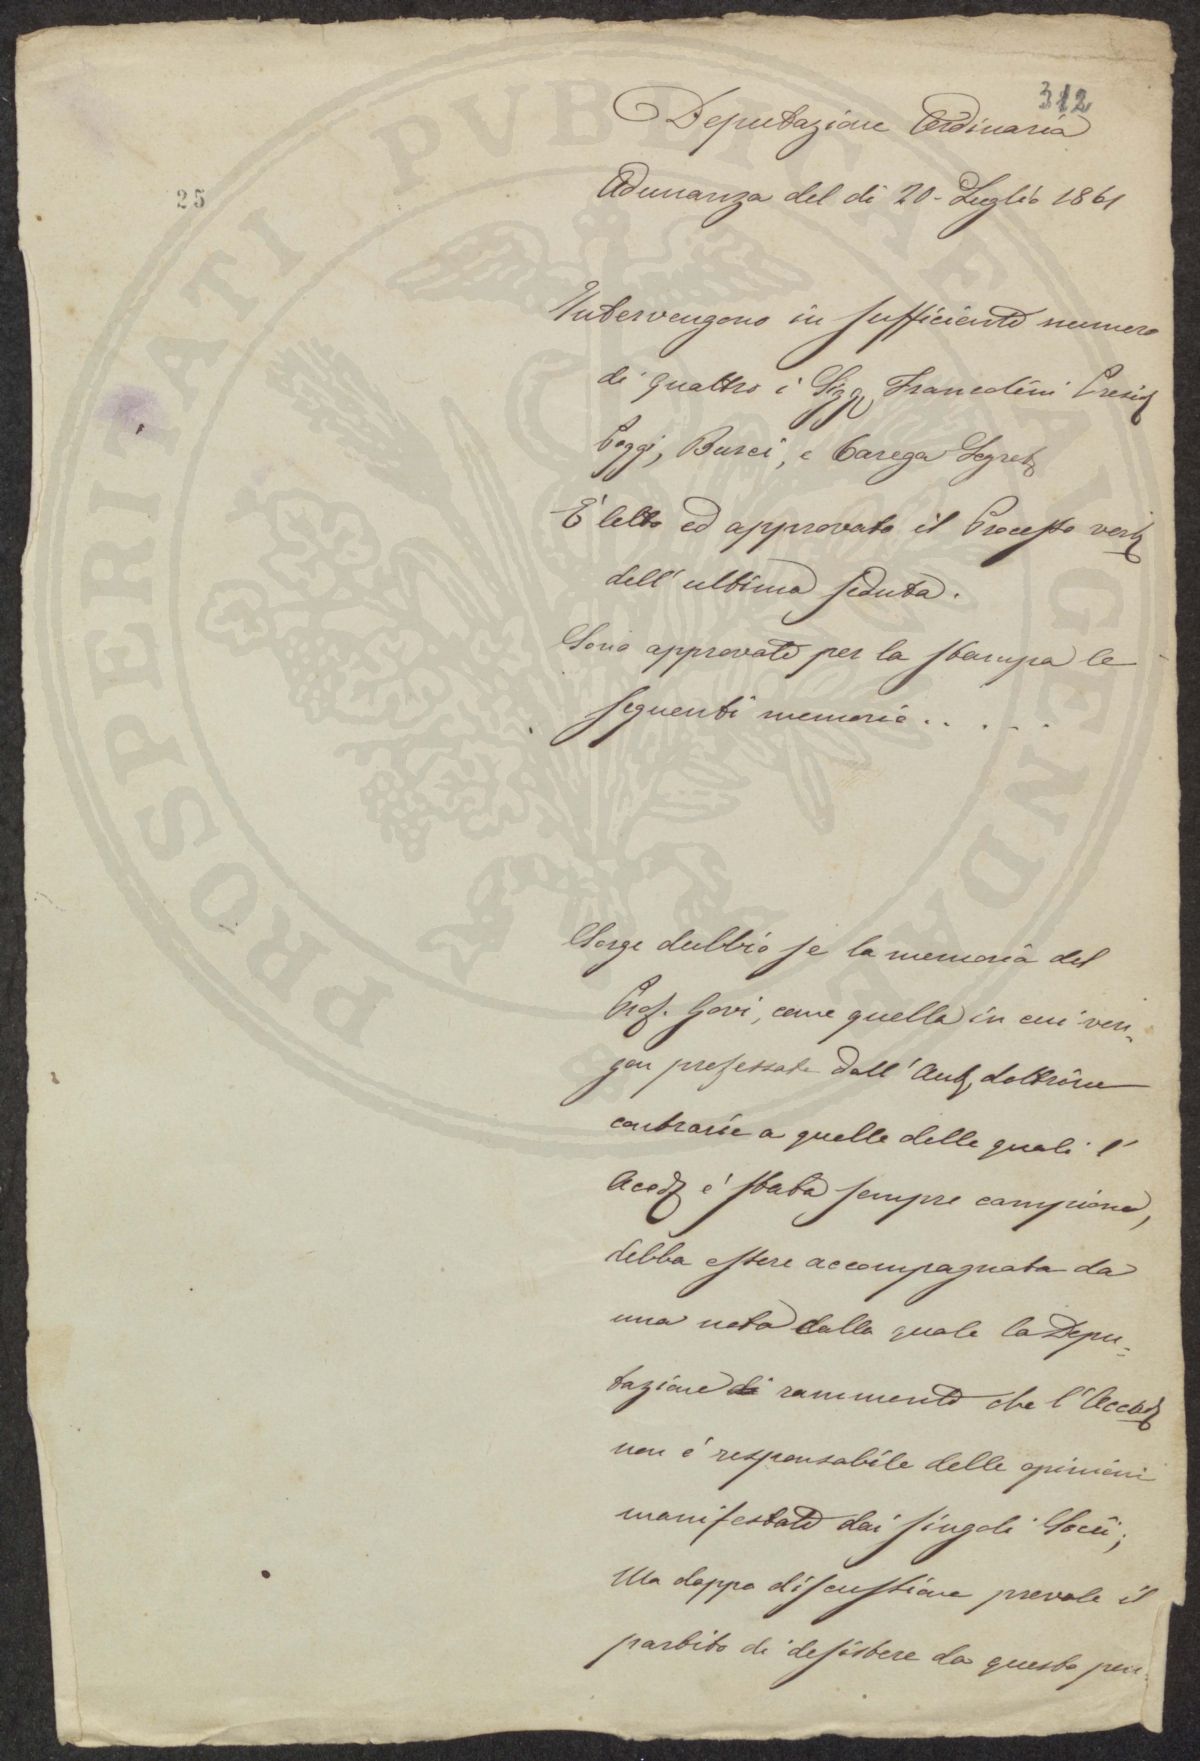 312
Deputazione Ordinaria
25
Adunanza del dì 20 - Luglio 1861
Intervengono in sufficiente numero
di quattro i Sigg. Franceschini Presid.
Poggi, Busci, e Carega Segret.
E' letto ed approvato il Processo verb.
dell' ultima seduta.
Sono approvate per la stampa le
seguenti memorie. . . . .
Sorge dubbio se la memoria del
Prof. Govi, come quella in cui ven=
gon professate dall' Aut. dottrine
contrarie a quelle delle quali l'
Acad. è stata sempre campione,
debba essere accompagnata da
una nota dalla quale la Depu=
tazione di rammente che l' Accad.
non è responsabile delle opinioni
manifestate dai singoli Socii;
Ma doppo discussione prevale il
partito di desistere da questo pen=
PROSPERITATI PVBLICAE AVGENDAE